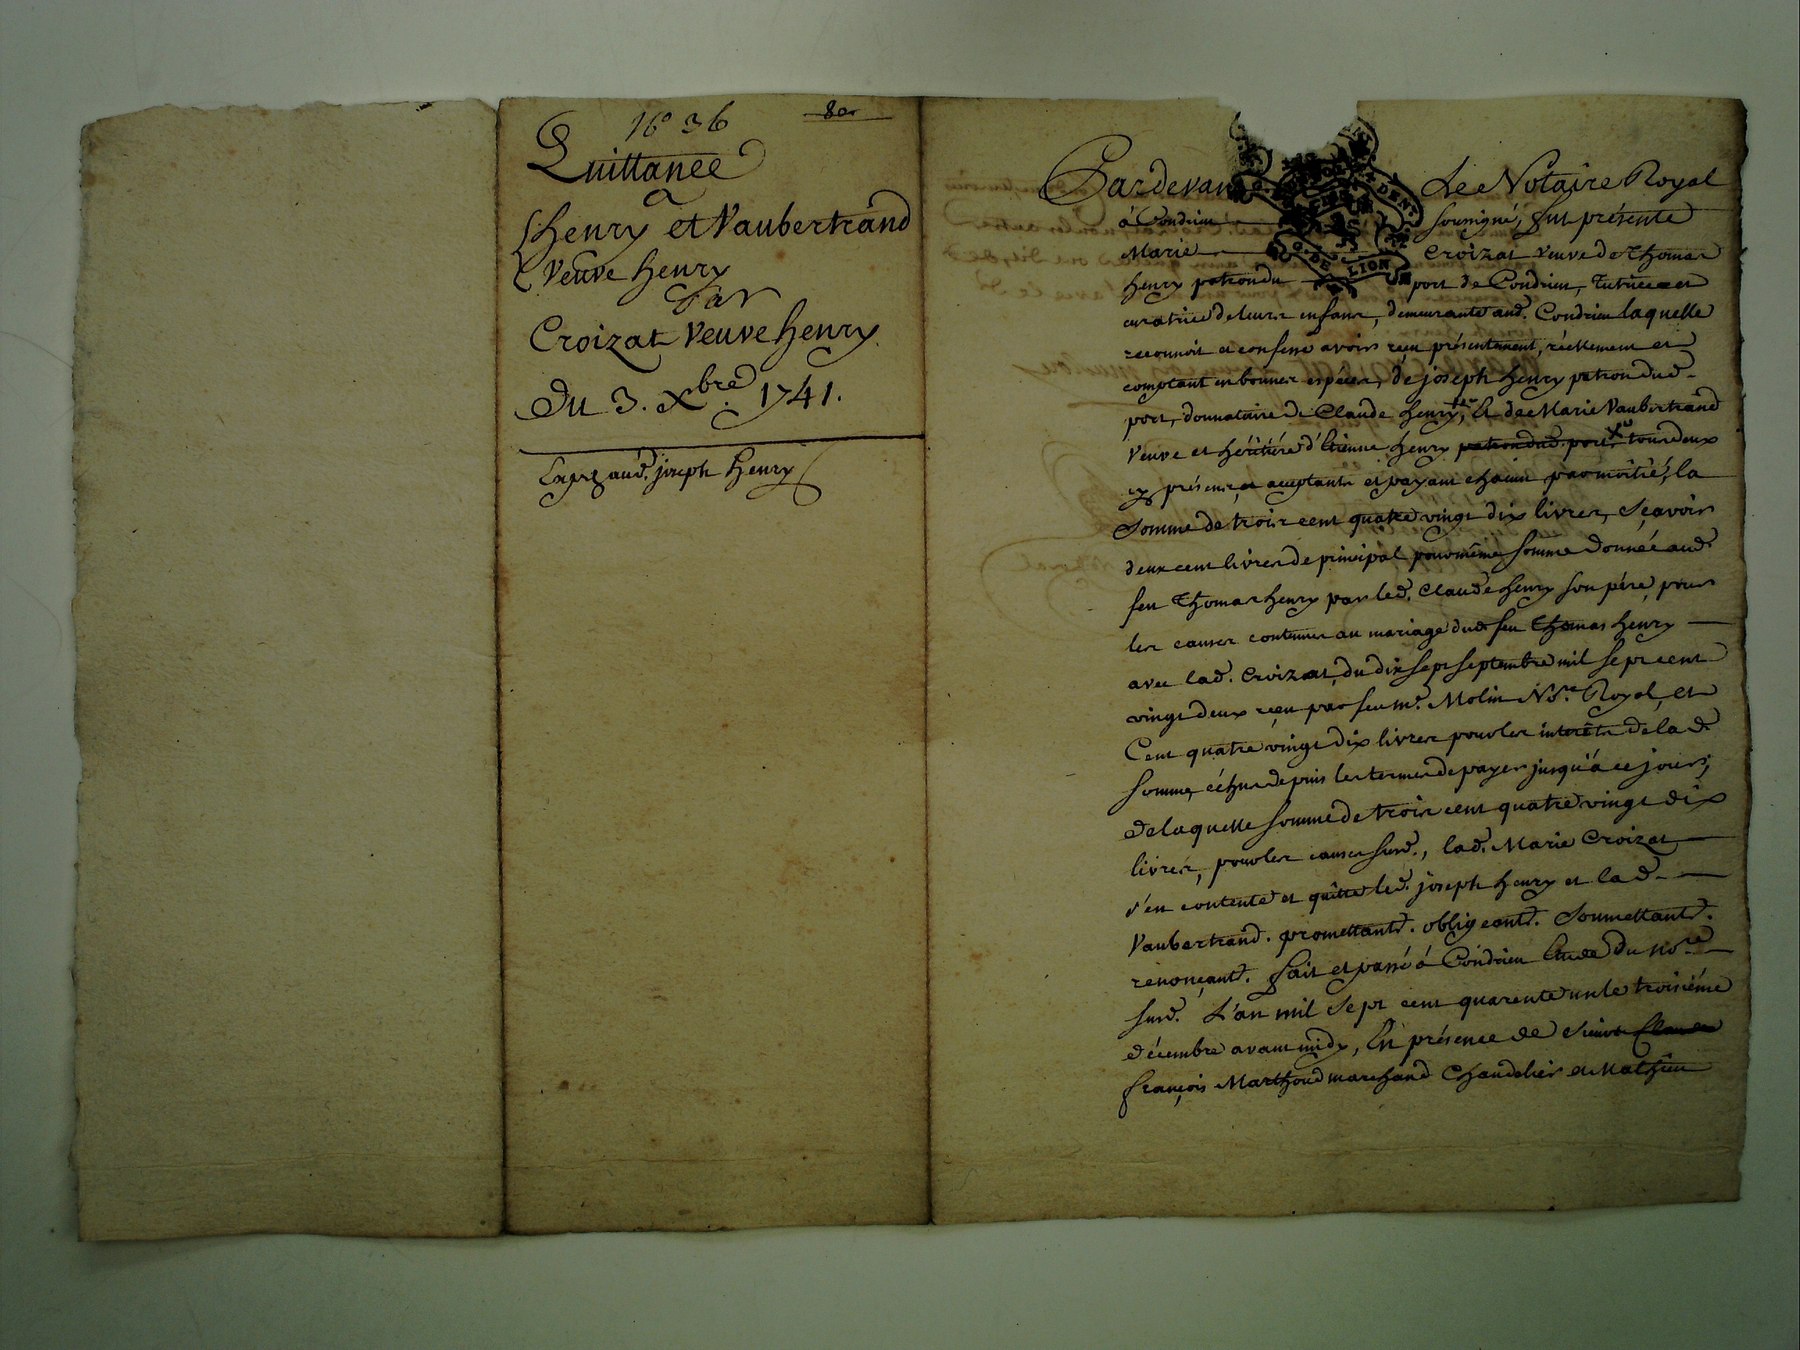 16° 36
80
Quittance
a
henry et Vaubertrand
Veuve henry
Par
Croizat Veuve henry.
Du 3. Xbre 1741.
Exped aud. joseph henry
Pardevant Le Notaire Royal
à Condrieu soussigné, fut présente
Marie Croizat veuve de Thomas
henry patron du port de Condrieu, Tutrice et
curatrice de leurs enfans, demeurante aud. Condrieu laquelle
reconnoit et confesse avoir reçu présentement, réellement et
comptant en bonnes espéces, de joseph henry patron dud.
port, donnataire de Claude henry, & de Marie Vaubertrand
Veuve et héritiére d'Etienne henry patron dud. port tous deux
cy présens et acceptants et payant chacun par moitié, la
somme de trois cent quatre vingt dix livres, sçavoir
deux cent livres de principal pour même somme donnée aud.
feu Thomas henry par led. Claude henry son pére, pour
les causes contenues au mariage dud feu Thomas henry
avec lad. Croizat, du dix sept septembre mil sept cent
vingt deux reçu par feu me. Molin Nore. Royal, et
Cent quatre vingt dix livres pour les intérêts de lad.
somme, échus depuis les termes de payer jusqu'à ce jour;
de laquelle somme de trois cent quatre vingt dix
livres, pour les causes susd., lad. Marie Croizat
s'en contente et quitte led. joseph henry et lad.
Vaubertrand. promettant. obligeant. soumettant.
renonçant. fait et passé à Condrieu Etude du nore
susd. L'an mil sept cent quarente un le troisiéme
décembre avant midy, En présence de sieurs Claude
françois Marthoud marchand Chandelier et Mathieu
DE LION